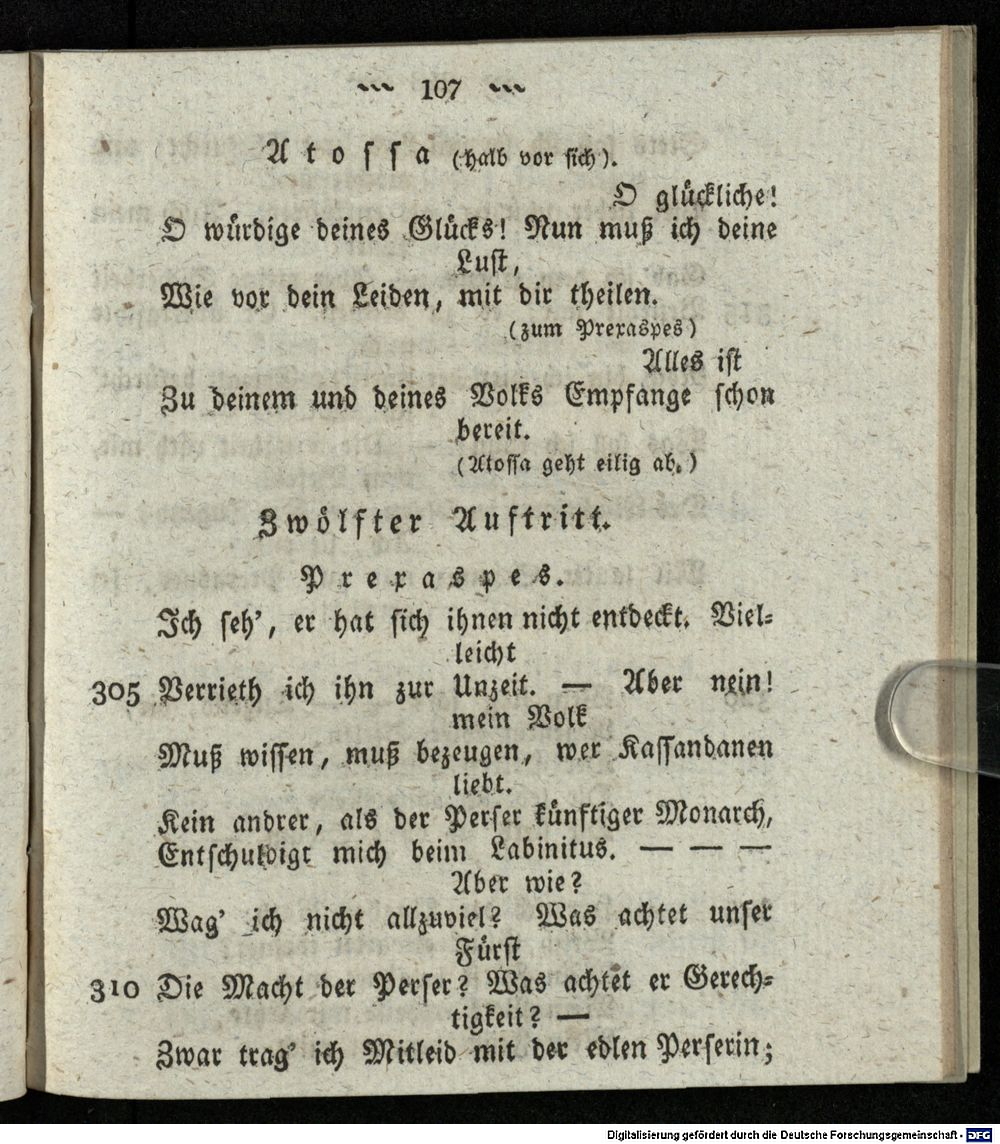 107
Atossa (halb vor sich).
O glückliche!
O würdige deines Glücks! Nun muß ich deine
Lust,
Wie vor dein Leiden, mit dir theilen.
(zum Prexaspes)
Alles ist
Zu deinem und deines Volks Empfange schon
bereit.
(Atossa geht eilig ab.)
Zwölfter Auftritt.
Prexaspes.
Ich seh', er hat sich ihnen nicht entdeckt. Viel-
leicht
305 Verrieth ich ihn zur Unzeit. — Aber nein!
mein Volk
Muß wissen, muß bezeugen, wer Kassandanen
liebt.
Kein andrer, als der Perser künftiger Monarch,
Entschuldigt mich beim Labinitus. — — —
Aber wie?
Wag' ich nicht allzuviel? Was achtet unser
Fürst
310 Die Macht der Perser? Was achtet er Gerech-
tigkeit? —
Zwar trag' ich Mitleid mit der edlen Perserin;
Digitalisierung gefördert durch die Deutsche Forschungsgemeinschaft - DFG